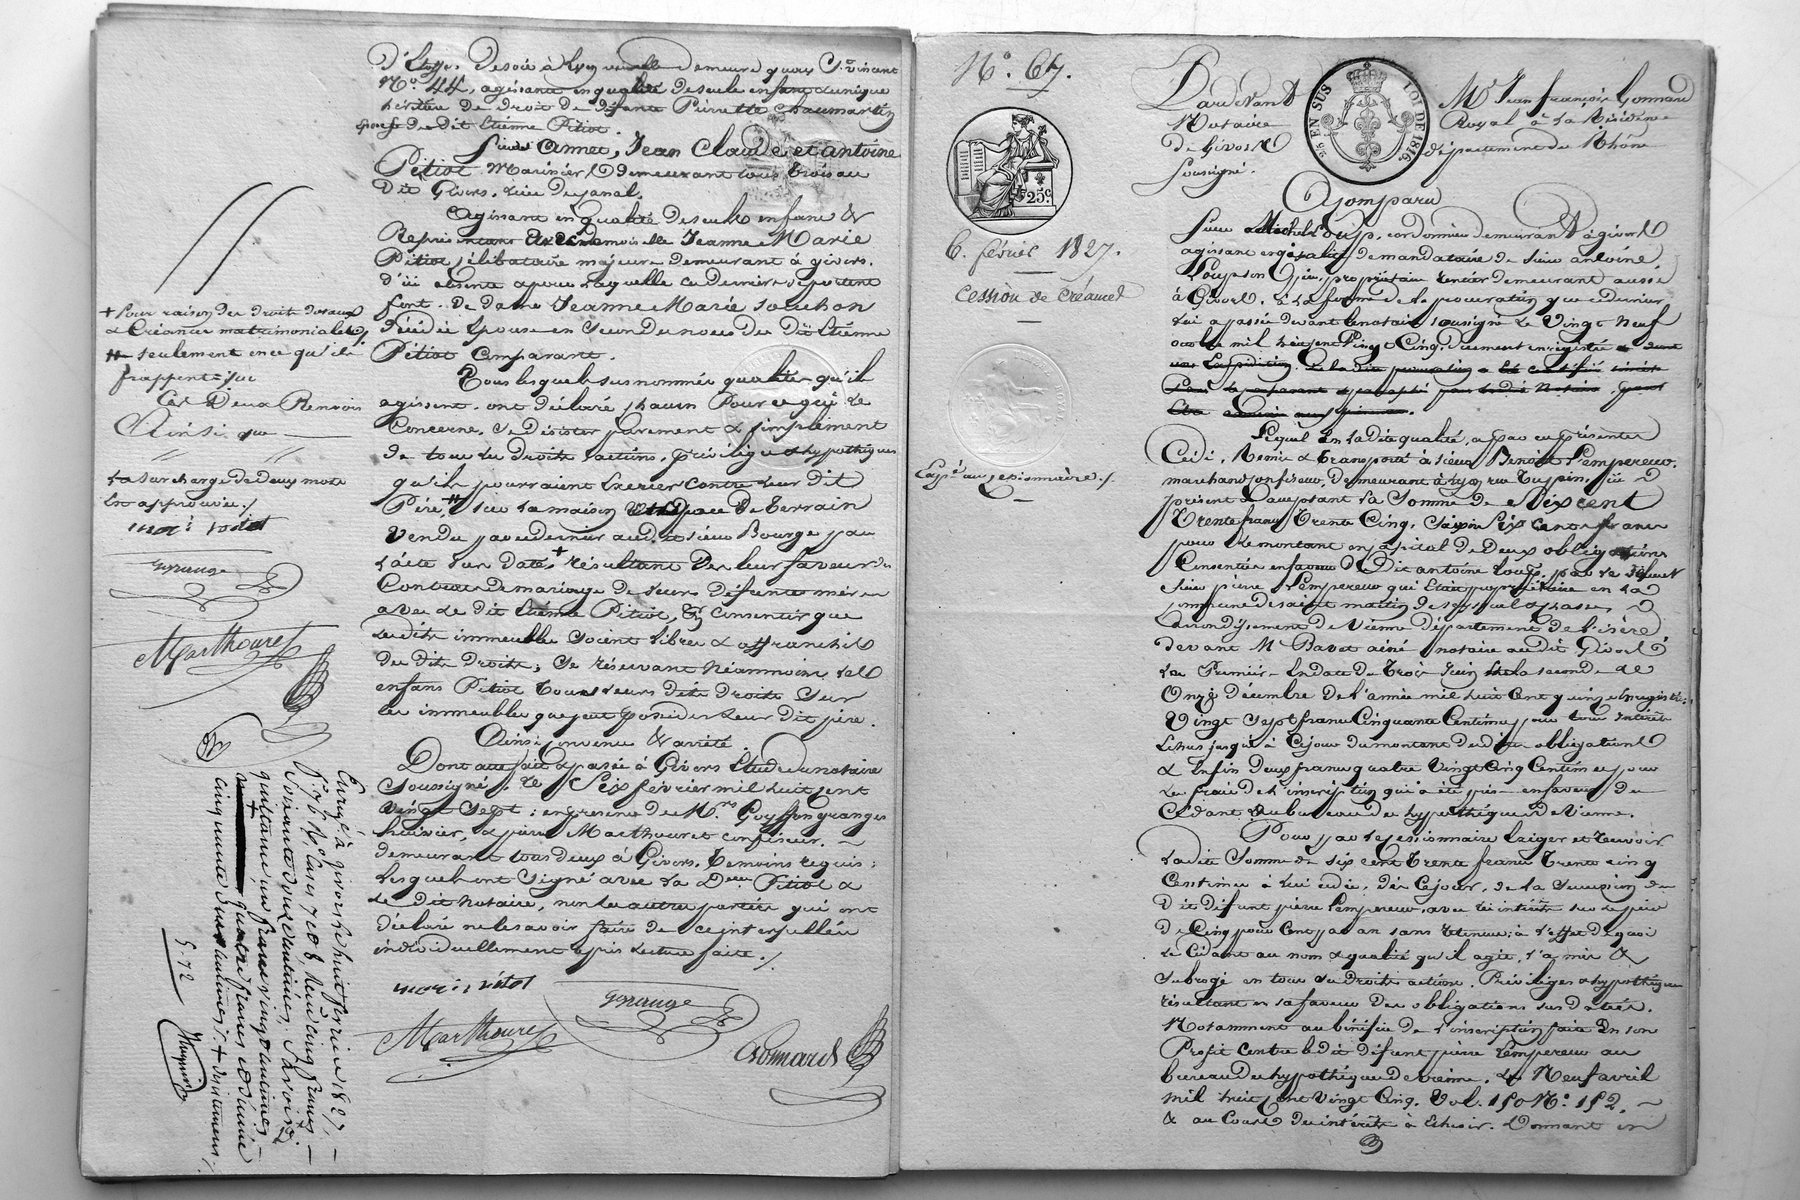 d'Etoffes de soie à Lyon demeure quay St. vincent
No. 44, agissant en qualité de seule enfant & unique
héritière de droit de défunte Pierrette Chaumartin
épouse du dit Etienne Pitiot.
Sieurs Annet, Jean Claude et antoine
Pitiot Mariniers Demeurant tous trois au
dit Givors, rue du canal.
Agissant en qualité de seuls enfans &
Représentans Demoiselle Jeanne Marie
Pitiot célibataire majeure demeurant à givors,
d'ici absente pour laquelle ce dernier se portent
fort. De dame Jeanne Marie Souchon
décédée Epouse en secondes noces du dit Etienne
Pitiot Comparant.
Tous lesquels susnommés qualités qu'ils
agissent, ont déclaré chacun Pour ce qui le
Concerne, Se désister purement & simplement
de tous les droits, actions, privilèges & hypothèques
qu'ils pourraient Exercer contre leur dit
Père, # sur la maison & Espace de terrain
vendu par ce dernier au dit sieur Bourge par
l'acte sus daté + résultant de leur faveur du
Contrat de mariage de leurs défuntes mères
avec le dit Etienne Pitiot, & Consentir que
les dits immeubles soient libres & affranchis
des dits droits; Se réservant néanmoins les
enfans Pitiot tous leurs dits droits sur
les immeubles que peut posséder leur dit père.
Ainsi convenu & arrêté
Dont acte fait & passé à Givors Etude du notaire
soussigné, le Six février mil huit cent
vingt sept; en présence de Mrs. Goyffon granger
huissier, & pierre Marthouret confiseur,
demeurant tous deux à Givors, témoins requis;
lesquels ont signé avec la Delle Pitiot &
le dit notaire, non les autres parties qui ont
déclaré ne le savoir faire de ce interpellées
individuellement après lecture faite./.
Marthouret
Gonnard
+ Pour raison des droits dotaux
& Créances matrimoniales,
# seulement en ce qu'ils
frappent sur
Ces Deux Renvois
Ainsi que
la surcharge de deux mots
Est approuvée./
Marthouret
Enregé. à givors le huit février 1827,
5.72
No. 67.
25c.
6. février 1827.
Cession de créances
Expé. au cessionnaire./.
25 EN SUS
LOI DE 1816
Pardevant Me Jean françois Gonnard
Notaire Royal à la Résidence
de Givors département du Rhône
soussigné.
A Comparu
Sieur Michel Loup, cordonnier demeurant à givors
agissant en qualité de mandataire de sieur antoine
Loup son père, propriétaire rentier demeurant aussi
à Givors, à la forme de la procuration que ce dernier
lui a passée devant le notaire soussigné le vingt neuf
octobre mil huit cent vingt cinq, duement enregistrée
Lequel en la dite qualité, a par ces présentes
Cédé, Remis & transporté à sieur Benoît Lempereur
marchand confiseur, demeurant à Lyon rue Tupin, ici
présent & acceptant la Somme de Six cent
trente francs trente Cinq, Savoir Six cents francs
pour le montant en capital de Deux obligations
Consenties en faveur du dit antoine Loup, par le défunt
sieur pierre Lempereur qui était propriétaire en la
commune de saint martin
arrondissement de Vienne département de l'isère
devant Me Bavet aîné notaire au dit Givors
La Première en date du trois juin & la seconde le
Onze décembre de l'année mil huit cent quinze enregistrées;
Vingt sept francs Cinquante Centimes pour tous intérêts
échus jusqu'à Ce jour du montant des dites obligations
& Enfin deux francs quatre vingt Cinq Centimes pour
les frais de l'inscription qui a été prise en faveur du
Cédant au bureau des hypothèques de Vienne.
Pour par le Cessionnaire Exiger et recevoir
la dite Somme de Six cent trente francs trente cinq
Centimes à lui cédée, dès Ce jour, de la Succession du
dit défunt pierre Lempereur, avec les intérêts sur le pied
de Cinq pour cent par an sans retenue; à l'effet de quoi
le Cédant au nom & qualité qu'il agit, l'a mis &
subrogé en tous ses Droits actions, Privilèges & hypothèques
résultant en sa faveur des obligations sus datées.
Notamment au bénéfice de l'inscription faite En son
Profit contre le dit défunt pierre Lempereur au
bureau des hypothèques de vienne, le Neuf avril
mil huit cent vingt cinq, Vol. 150 No. 152.
& au Cours des intérêts à Echoir. Donnant en